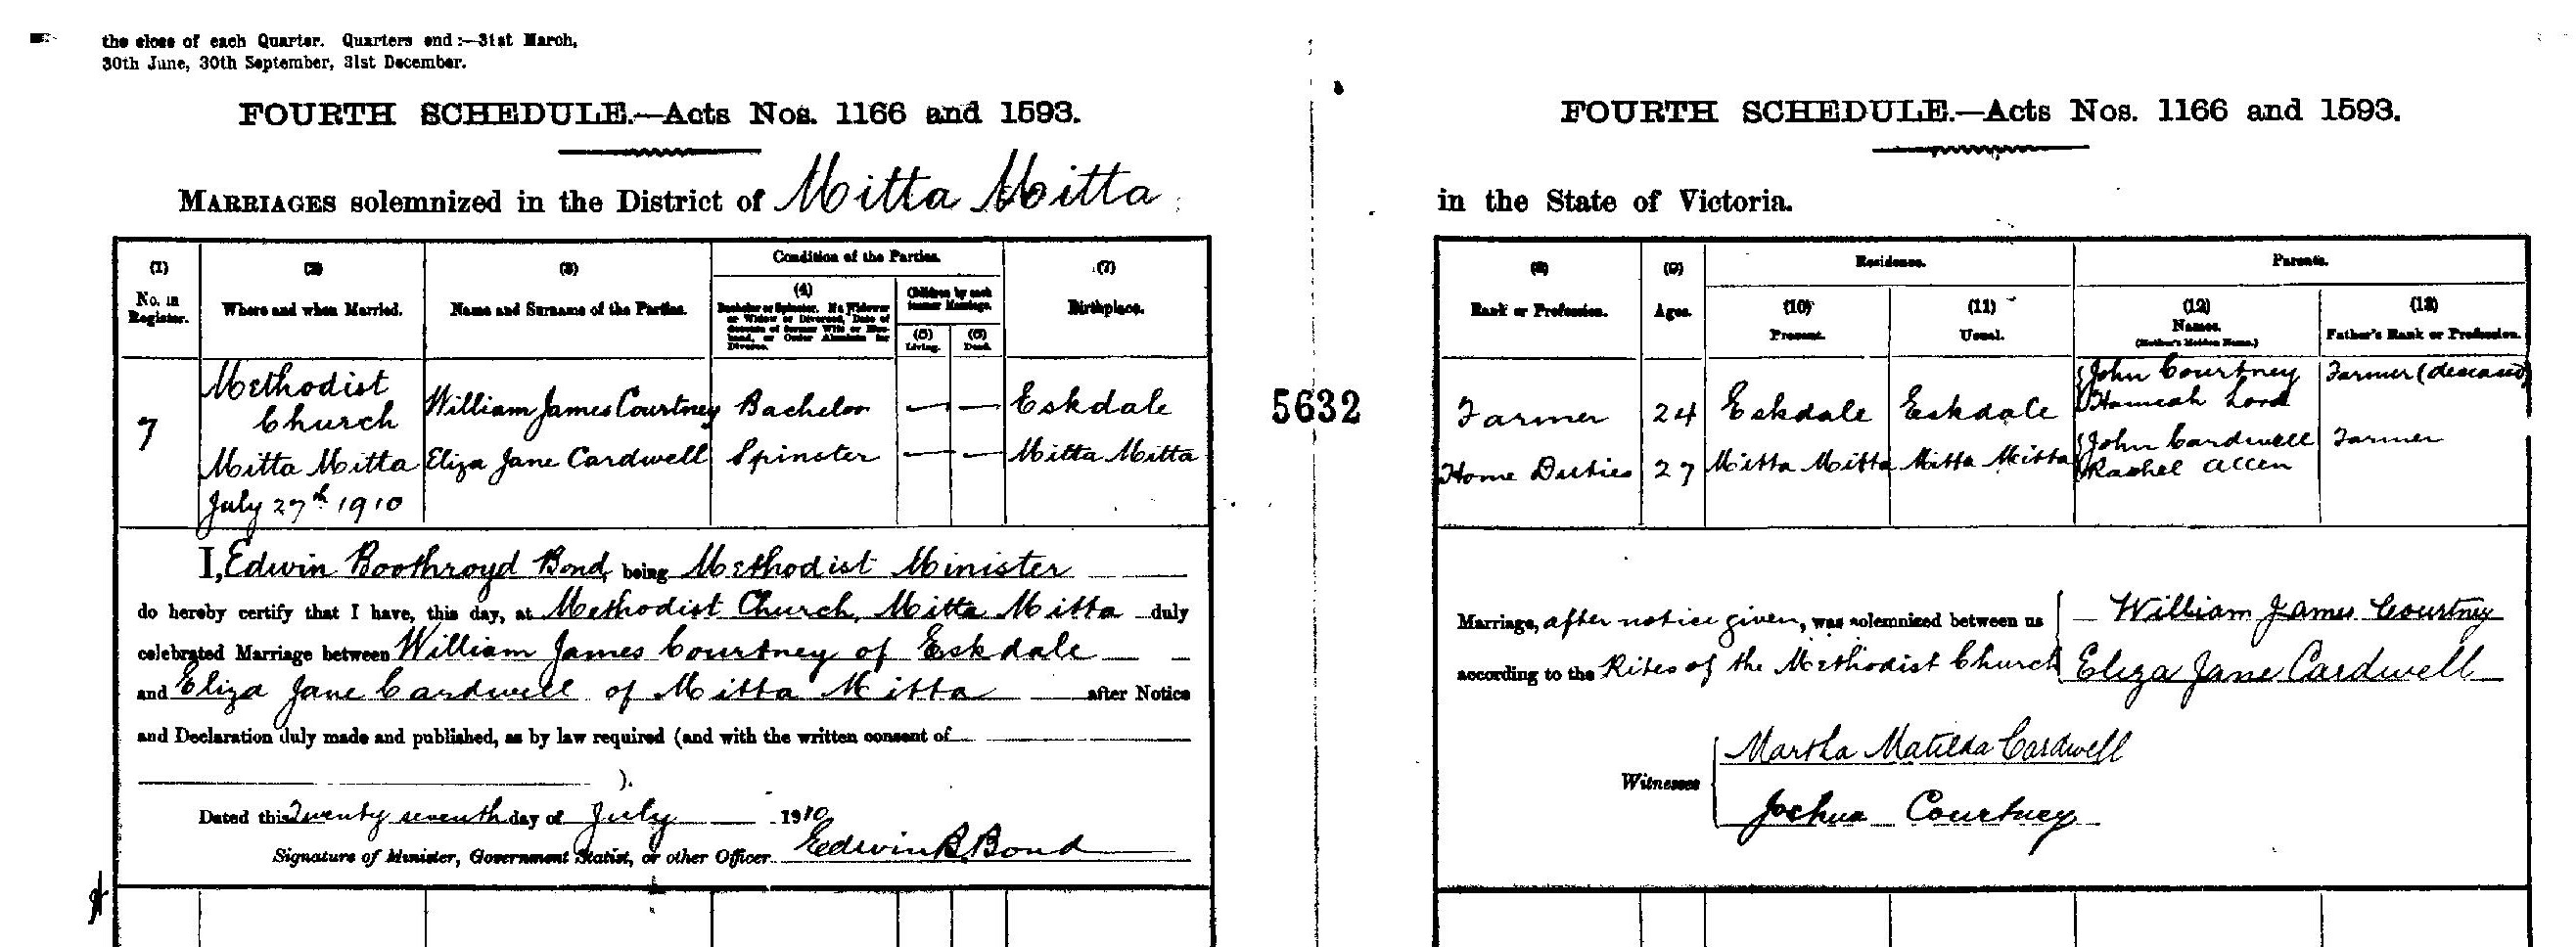 the close of each Quarter. Quarters end:—31st March,
30th June, 30th September, 31st December.
FOURTH SCHEDULE.—Acts Nos. 1166 and 1593.
MARRIAGES solemnized in the District of Mitta Mitta
(1) (2) (3) Condition of the Parties. (7)
No. in Register. Where and when Married. Name and Surname of the Parties. (4) Children by each former Marriage. Birthplace.
Bachelor or Spinster. If a Widower or Widow or Divorced, Date of Decease of former Wife or Husband, or Order Absolute for Divorce.
(5) Living. (6) Dead.
7
Methodist
Church
Mitta Mitta
July 27th 1910
William James Courtney Bachelor — — Eskdale
Eliza Jane Cardwell Spinster — — Mitta Mitta
I, Edwin Boothroyd Bond, being Methodist Minister
do hereby certify that I have, this day, at Methodist Church, Mitta Mitta duly
celebrated Marriage between William James Courtney of Eskdale
and Eliza Jane Cardwell of Mitta Mitta after Notice
and Declaration duly made and published, as by law required (and with the written consent of
).
Dated this Twenty seventh day of July 1910
Signature of Minister, Government Statist, or other Officer Edwin B. Bond
5632
FOURTH SCHEDULE.—Acts Nos. 1166 and 1593.
in the State of Victoria.
(8) (9) Residence. Parents.
Rank or Profession. Ages. (10) Present. (11) Usual. (12) Names. (Mother's Maiden Name.) (13) Father's Rank or Profession.
Farmer 24 Eskdale Eskdale John Courtney Farmer (deceased)
Hannah Lord
Home Duties 27 Mitta Mitta Mitta Mitta John Cardwell Farmer
Rachel Allen
Marriage, after notice given, was solemnized between us William James Courtney
according to the Rites of the Methodist Church Eliza Jane Cardwell
Witnesses
Martha Matilda Cardwell
Joshua Courtney